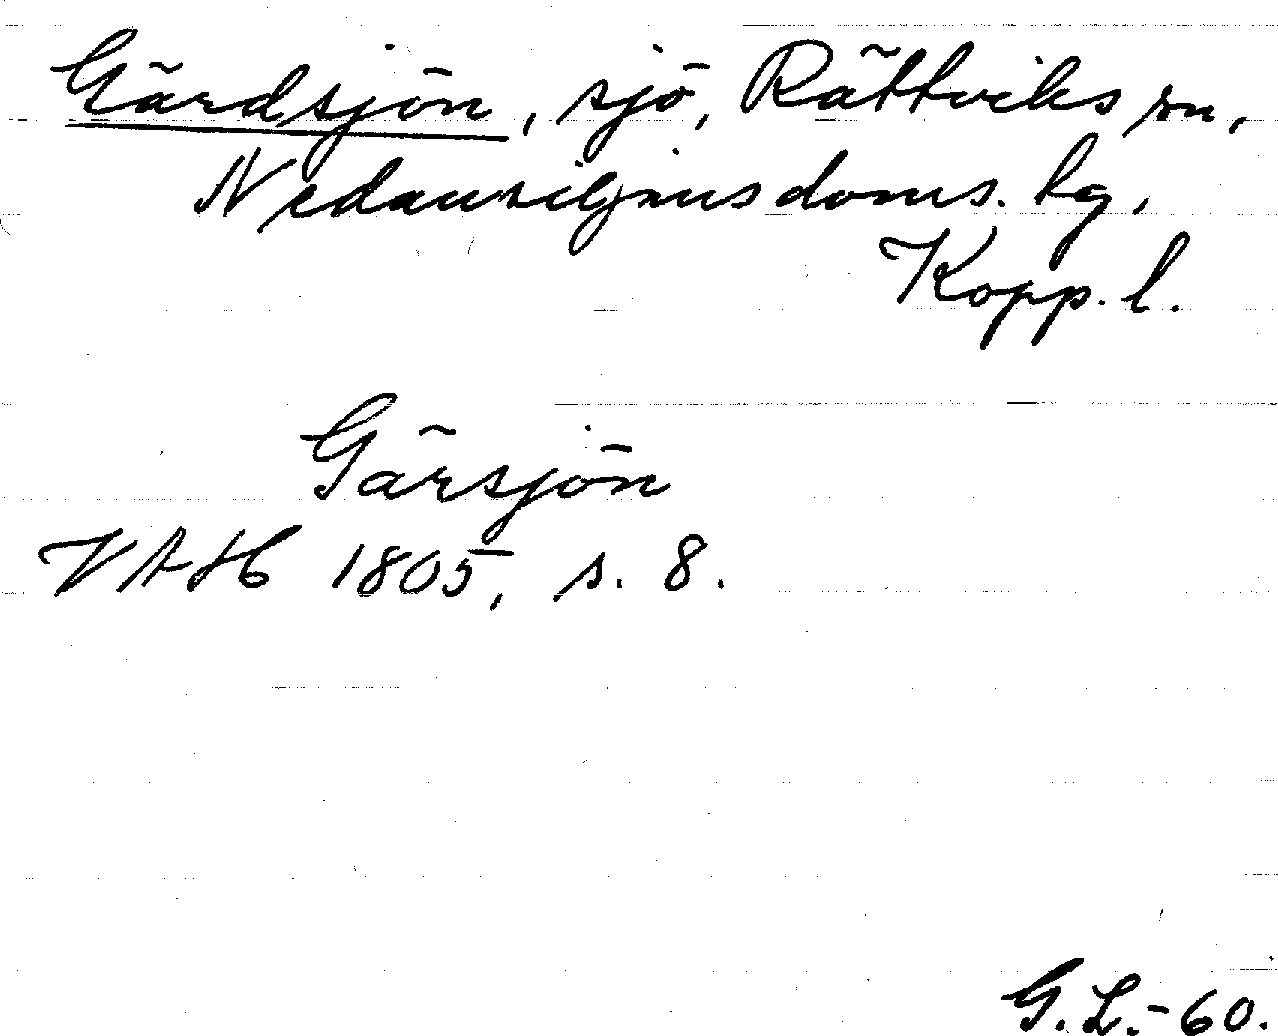 Gärdsjön, sjö, Rättviks sn,
Nedansiljans doms. hg.
Kopp. l.
Gärsjön
VAH 1805, s. 8.
G.L.-60.